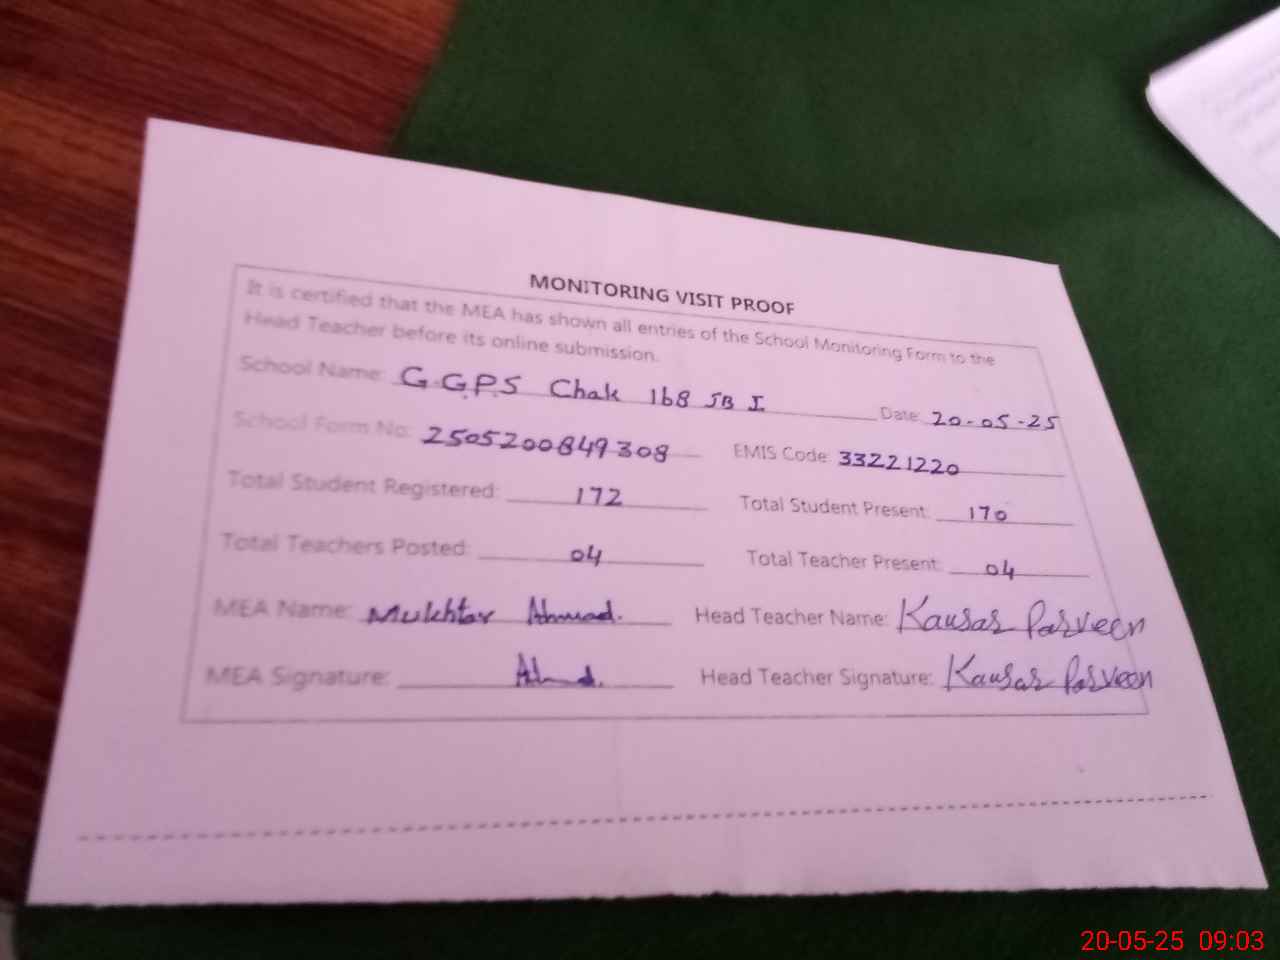 MONITORING VISIT PROOF
It is certified that the MEA has shown all entries of the School Monitoring Form to the
Head Teacher before its online submission.
School Name: G.G.P.S Chak 168 JB I Date: 20-05-25
School Form No: 2505200849308 EMIS Code: 33221220
Total Student Registered: 172 Total Student Present: 170
Total Teachers Posted: 04 Total Teacher Present: 04
MEA Name: Mukhtar Ahmad. Head Teacher Name: Kausar Parveen
MEA Signature: Head Teacher Signature: Kausar Parveen
20-05-25 09:03